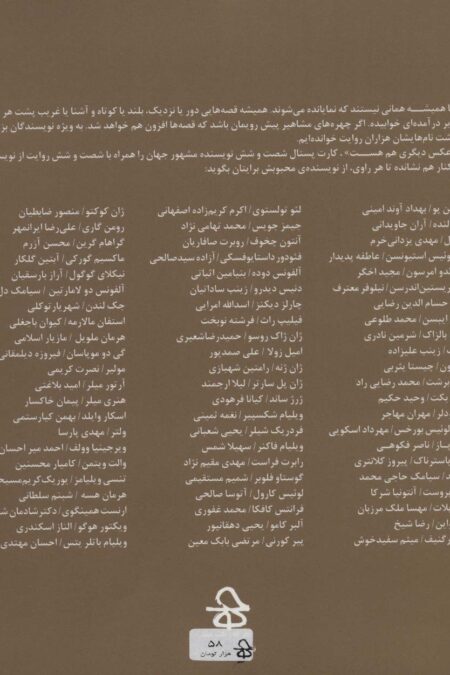 همیشه همانی نیستند که نمایانده می‌شوند. همیشه قصه‌هایی دور یا نزدیک، بلند یا کوتاه و آشنا یا غریب پشت هر
درآمده‌ای خوابیده. اگر چهره‌های مشاهیر پیش رویمان باشد که قصه‌ها افزون هم خواهد شد. به ویژه نویسندگان
پشت نام‌هایشان هزاران روایت خوانده‌ایم.
عکس دیگری هم هست»، کارت پستال شصت و شش نویسنده مشهور جهان را همراه با شصت و شش روایت از
کنار هم نشانده تا هر راوی، از نویسنده‌ی محبوبش برایتان بگوید:
پو/ بهداد آوند امینی
آران جاویدانی
مهدی یزدانی‌خرم
لوئیس استیونسون/ عاطفه پدیدار
امرسون/ مجید اخگر
نیلوفر معترف
حسام الدین رضایی
ایبسن/ محمد طلوعی
بالزاک/ شرمین نادری
زینب علیزاده
چیستا یثربی
برشت/ محمد رضایی راد
بکت/ وحید حکیم
مهران مهاجر
لوئیس بورخس/ مهرداد اسکویی
ناصر فکوهی
پاسترناک/ پیروز کلانتری
سیامک حاجی محمد
آنتونیا شرکا
مهسا ملک مرزبان
رضا شیخ
میثم سفیدخوش
لئو تولستوی/ اکرم کریم‌زاده اصفهانی
جیمز جویس/ محمد تهامی نژاد
آنتون چخوف/ روبرت صافاریان
فئودور داستایوفسکی/ آزاده سیدصالحی
آلفونس دوده/ بنیامین اثباتی
دنیس دیدرو/ زینب ساداتیان
چارلز دیکنز/ اسدالله امرایی
فیلیپ راث/ فرشته نوبخت
ژان ژاک روسو/ حمیدرضا شعیری
امیل زولا/ علی صمدپور
ژان ژنه/ رامتین شهبازی
ژان پل سارتر/ لیلا ارجمند
ژرژ ساند/ کیانا فرهودی
ویلیام شکسپیر/ نغمه ثمینی
فردریک شیلر/ یحیی شعبانی
ویلیام فاکنر/ سهیلا شمس
رابرت فراست/ مهدی مقیم نژاد
گوستاو فلوبر/ شمیم مستقیمی
لوئیس کارول/ آتوسا صالحی
فرانتس کافکا/ محمد غفوری
آلبر کامو/ یحیی دهقانپور
پیر کورنی/ مرتضی بابک معین
ژان کوکتو/ منصور ضابطیان
رومن گاری/ علی‌رضا ایرانمهر
گراهام گرین/ محسن آزرم
ماکسیم گورکی/ آبتین گلکار
نیکلای گوگول/ آراز بارسقیان
آلفونس دو لامارتین/ سیامک
جک لندن/ شهریار توکلی
استفان مالارمه/ کیوان باجغلی
هرمان ملویل/ مازیار اسلامی
گی دو موپاسان/ فیروزه دیلمقانی
مولیر/ نصرت کریمی
آرتور میلر/ امید بلاغتی
هنری میلر/ پیمان خاکسار
اسکار وایلد/ بهمن کیارستمی
ولتر/ مهدی پارسا
ویرجینیا وولف/ احمد میر احسان
والت ویتمن/ کامیار محسنین
تنسی ویلیامز/ پوریک کریم‌مسیحی
هرمان هسه/ شبنم سلطانی
ارنست همینگوی/ دکتر شادمان
ویکتور هوگو/ الناز اسکندری
ویلیام باتلر ییتس/ احسان مهتدی
۵۸
هزار تومان